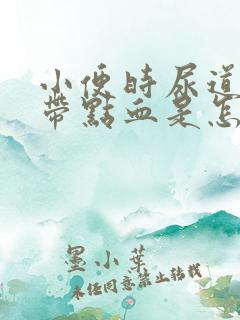 小便時尿道
帶點血是怎
墨小葉
未經同意禁止轉載